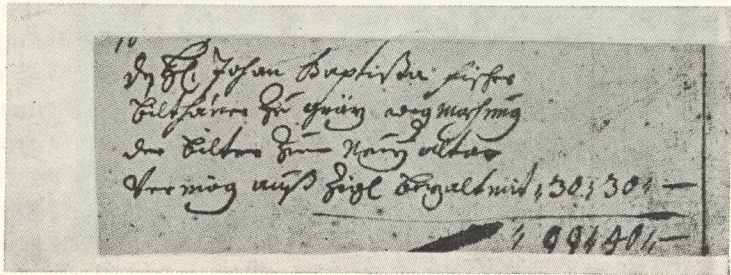 10
Johan Baptista Fischer
Bilthauer zu Gräz weg Machung
der Bilter zum Neuen altar
Vermög auß Zigl bezalt mit , 30 , 30 , —